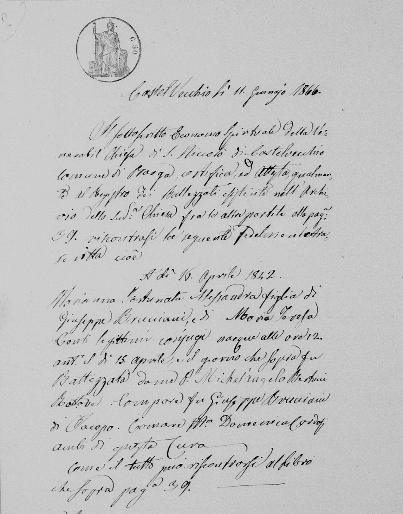 Castel Vecchio lì 11 Giugno 1866
Il sottoscritto Economo Spirituale della Ve-
nerabil Chiesa di S. Niccolò di Castelvecchio
Comune di Barga certifica, ed attesta, qualmen-
te al Registro dei Battezzati esistente nell'Archi-
vio della sud.a Chiesa fra le altre partite alla pag.
39. riscontrasi la seguente fedelmente estrat-
ta cioè
A dì 16. Aprile 1842.
Marianna Fortunata Alessandra figlia di
Giuseppe Bru di Maria Teresa
Conti legittimi conjugi nacque alle ore 12.
ant. il dì 15 aprile, e il giorno che sopra fu
Battezzata da me P. Michelangelo
Rettore. Compare fu Giuseppe
di Jacopo. Comare M.a Domenica
ambi di questa Cura
Come il tutto può riscontrarsi al libro
che sopra pag.a 39.